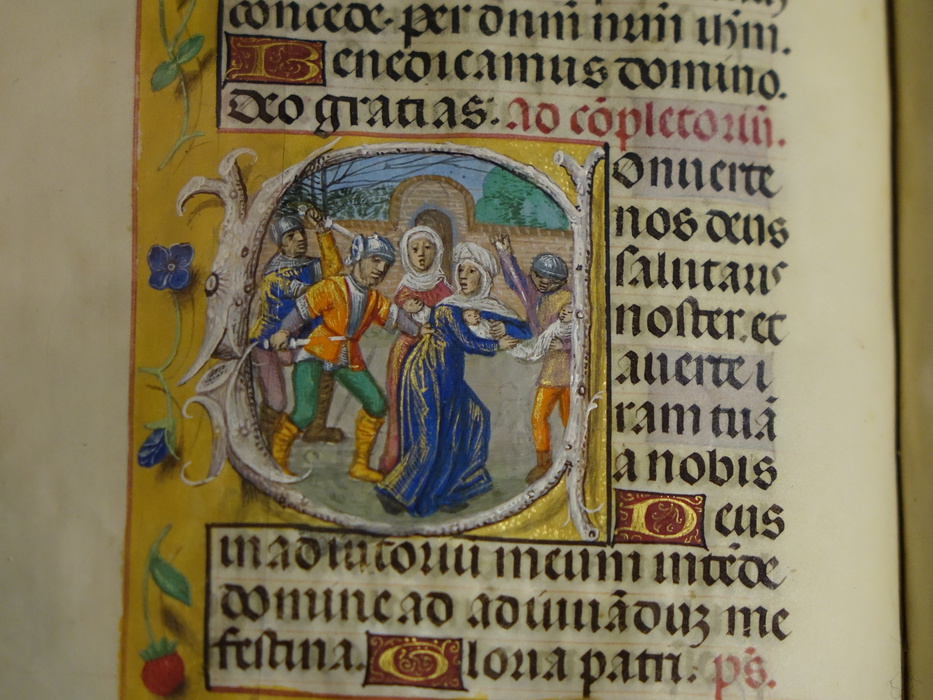 concede. per dnm̄ nrm̄ ihm.
Benedicamus domino.
deo gratias. Ad cōpletoriū.
Conuerte
nos deus
salutaris
noster. et
auerte i
ram tuā
a nobis
Deus
in adiutoriū meum intēde
domine ad adiuuādūʒ me
festina. Gloria patri. ps̄.